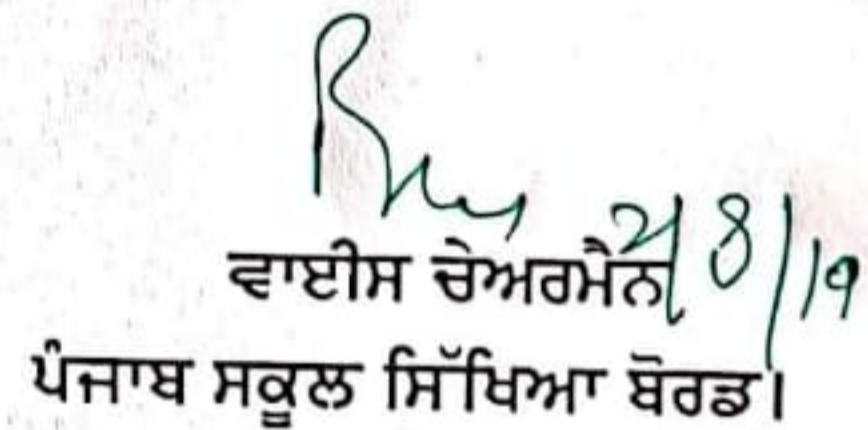 2/8/19
ਵਾਈਸ ਚੇਅਰਮੈਨ
ਪੰਜਾਬ ਸਕੂਲ ਸਿੱਖਿਆ ਬੋਰਡ।